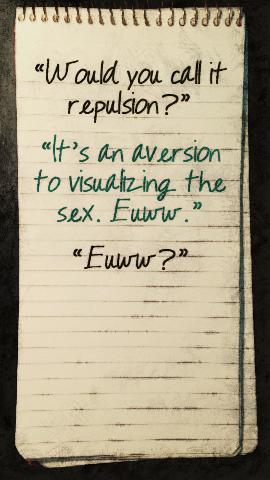 “Would you call it
repulsion?”
“It's an aversion
to visualizing the
sex. Euww.”
“Euww?”